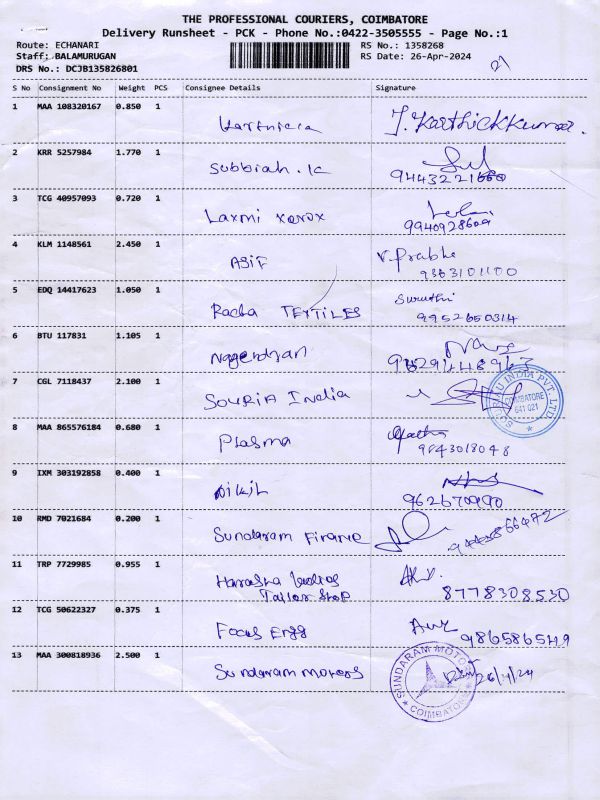 THE PROFESSIONAL COURIERS, COIMBATORE
Delivery Runsheet - PCK - Phone No.:0422-3505555 - Page No.:1
Route: ECHANARI RS No.: 1358268
Staff: BALAMURUGAN RS Date: 26-Apr-2024
DRS No.: DCJB135826801
S No Consignment No Weight PCS Consignee Details Signature
1 MAA 108320167 0.850 1 J. Karthickkumar.
2 KRR 5257984 1.770 1 Subbiah.K
3 TCG 40957093 0.720 1 Laxmi xerox
9940928609
4 KLM 1148561 2.450 1 ASIF V. Prabhu
9363101100
5 EDQ 14417623 1.050 1 Radha TEXTILES Suruthi
9952650314
6 BTU 117831 1.105 1 Nagendran
7 CGL 7118437 2.100 1 SOURIA India
SOURIAU INDIA PVT. LTD
COIMBATORE
641 021
8 MAA 865576184 0.680 1 Plasma
9843018048
9 IXM 303192858 0.400 1 Nikil
10 RMD 7021684 0.200 1 Sundaram Finance
11 TRP 7729985 0.955 1 Tailor Shop
8778308530
12 TCG 50622327 0.375 1 Focus Engg
13 MAA 300818936 2.500 1 Sundaram motors 26/4/24
SUNDARAM MOTORS
COIMBATORE